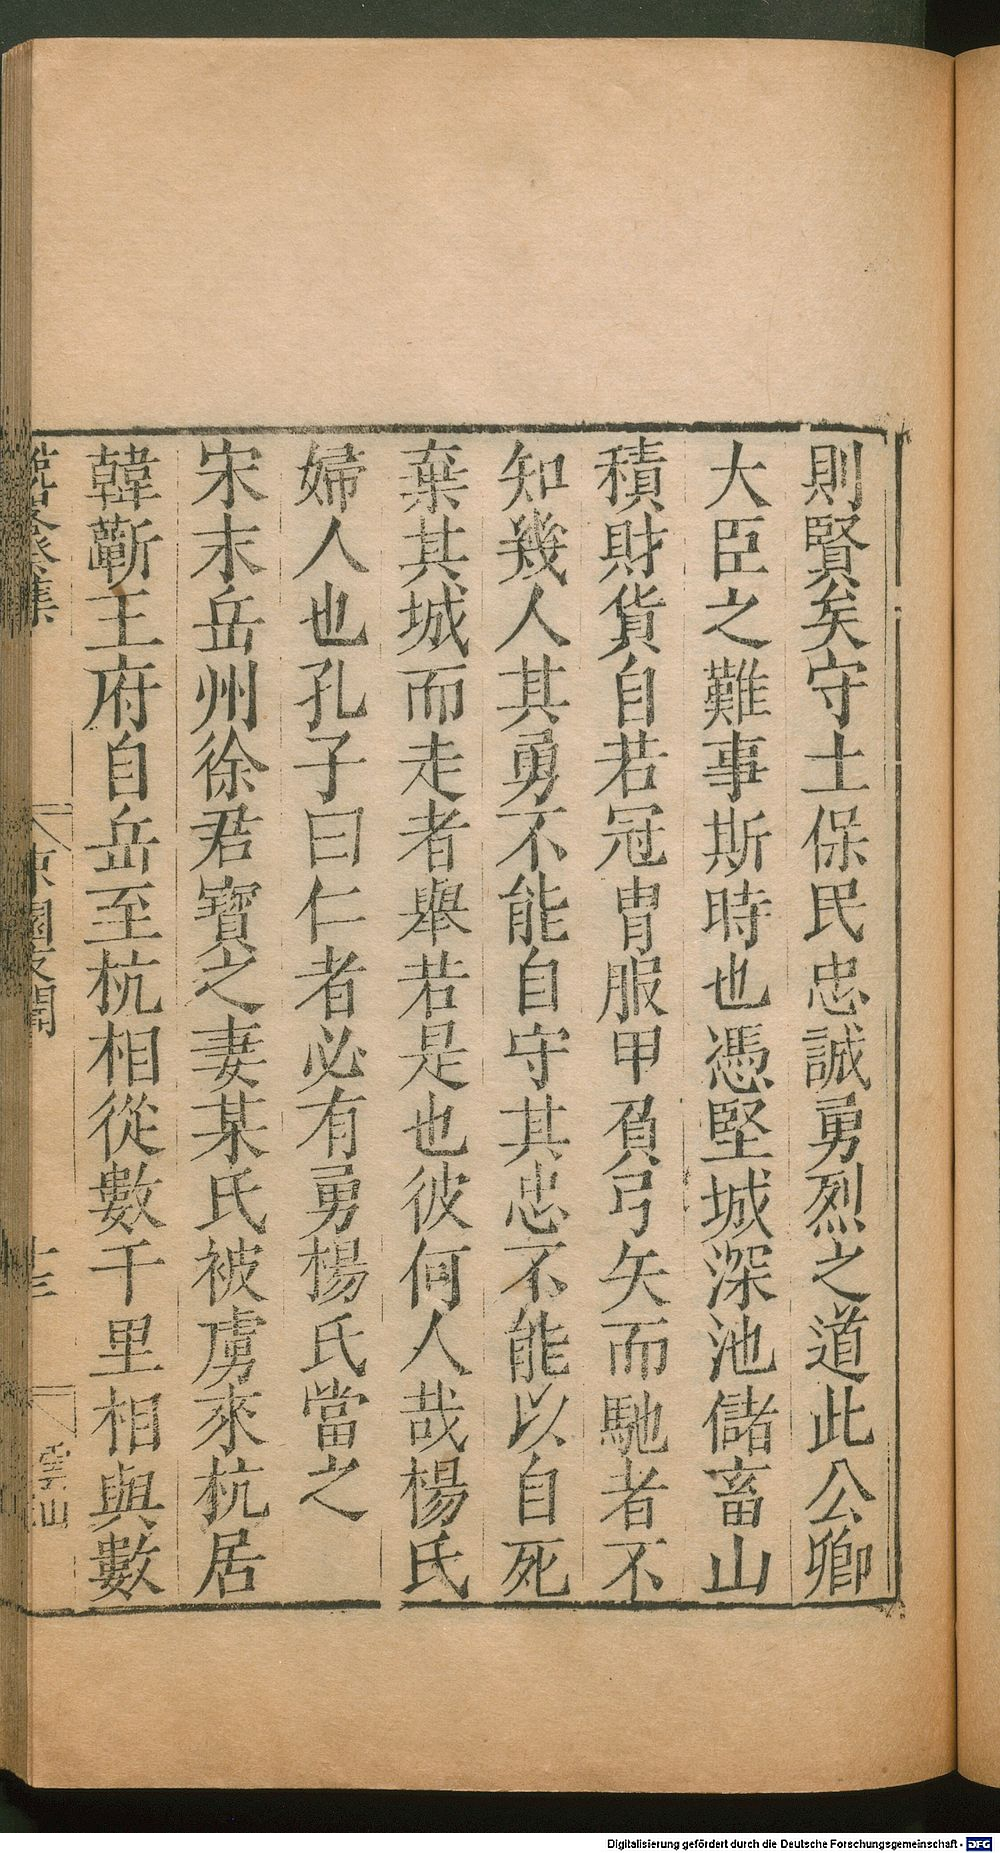 則賢矣守土保民忠誠勇烈之道此公卿
大臣之難事斯時也憑堅城深池儲畜山
積財貨自若冠胄服甲負弓矢而馳者不
知幾人其勇不能自守其忠不能以自死
棄其城而走者舉若是也彼何人哉楊氏
婦人也孔子曰仁者必有勇楊氏當之
宋末岳州徐君寶之妻某氏被虜來杭居
韓蘄王府自岳至杭相從數千里相與數
雲仙
Digitalisierung gefördert durch die Deutsche Forschungsgemeinschaft - DFG